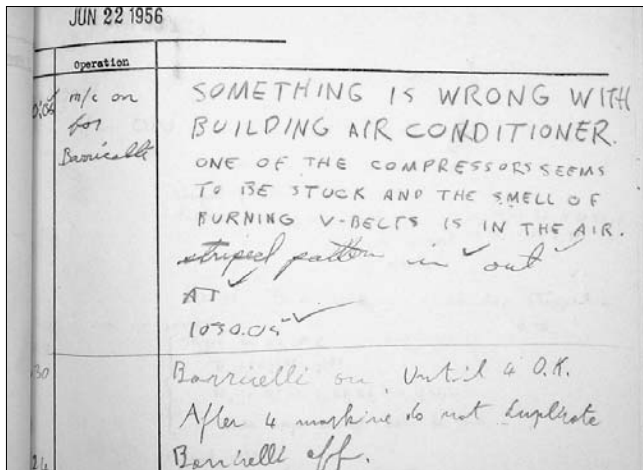 JUN 22 1956
Operation
m/c on
for
Barricelli
SOMETHING IS WRONG WITH
BUILDING AIR CONDITIONER.
ONE OF THE COMPRESSORS SEEMS
TO BE STUCK AND THE SMELL OF
BURNING V-BELTS IS IN THE AIR.
striped pattern in ✓ out ✓
AT ✓
1030.05 ✓
Barricelli on. Until 4 O.K.
After 4 machine do not duplicate
Barricelli off.